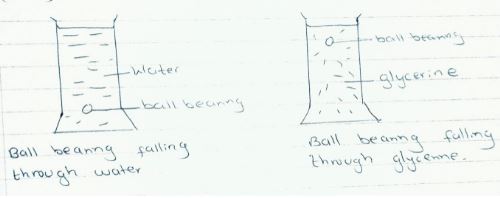 water
ball bearing
Ball bearing falling
through water
ball bearing
glycerine
Ball bearing falling
through glycerine.